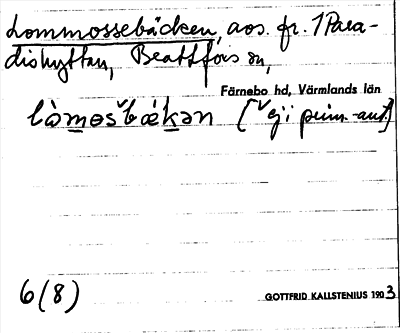 Lommossebäcken, aos. fr. 1 Para-
dishyttan, Beattfors sn,
Färnebo hd, Värmlands län
lòmosbækən [ej i prim.-aut.]
6(8)
GOTTFRID KALLSTENIUS 1903